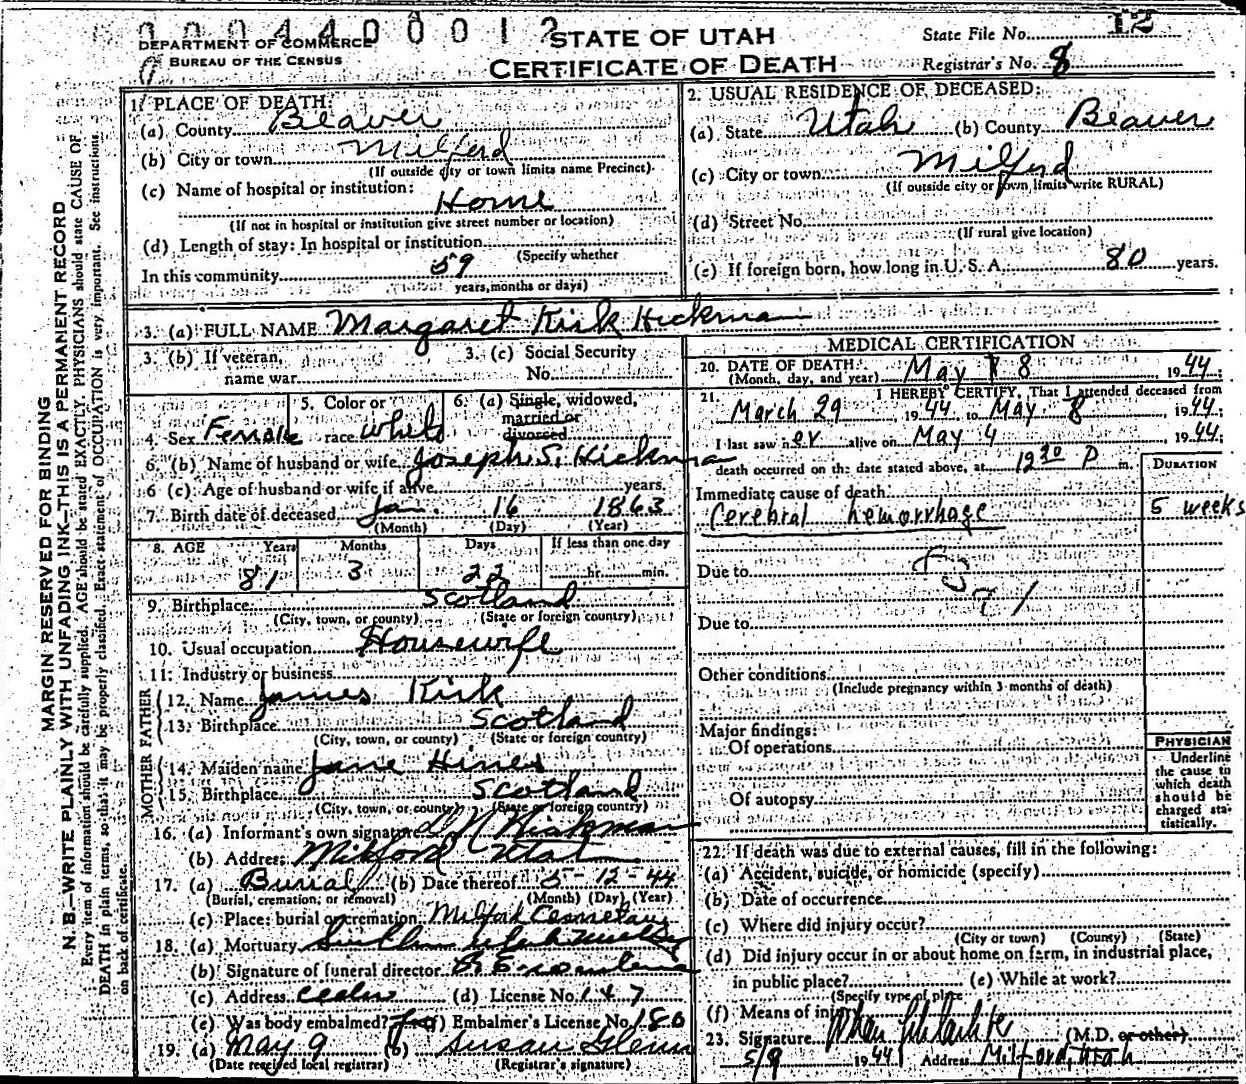 000440001?
DEPARTMENT OF COMMERCE
BUREAU OF THE CENSUS
STATE OF UTAH
CERTIFICATE OF DEATH
State File No. 12
Registrar's No. 8
MARGIN RESERVED FOR BINDING
N. B.—WRITE PLAINLY WITH UNFADING INK—THIS IS A PERMANENT RECORD
Every item of information should be carefully supplied. AGE should be stated EXACTLY. PHYSICIANS should state CAUSE OF
DEATH in plain terms, so that it may be properly classified. Exact statement of OCCUPATION is very important. See instructions
on back of certificate.
1. PLACE OF DEATH:
(a) County Beaver
(b) City or town Milford
(If outside city or town limits name Precinct)
(c) Name of hospital or institution:
Home
(If not in hospital or institution give street number or location)
(d) Length of stay: In hospital or institution
(Specify whether
In this community 59
years, months or days)
2. USUAL RESIDENCE OF DECEASED:
(a) State Utah (b) County Beaver
(c) City or town Milford
(If outside city or town limits write RURAL)
(d) Street No.
(If rural give location)
(e) If foreign born, how long in U. S. A. 80 years.
3. (a) FULL NAME Margaret Kirk Hickman
3. (b) If veteran,
name war
3. (c) Social Security
No.
4. Sex Female
5. Color or
race white
6. (a) Single, widowed,
married or
divorced
6. (b) Name of husband or wife Joseph S. Hickman
6 (c) Age of husband or wife if alive years.
7. Birth date of deceased Jan. 16 1863
(Month) (Day) (Year)
8. AGE Years Months Days If less than one day
81 3 22 hr. min.
9. Birthplace Scotland
(City, town, or county) (State or foreign country)
10. Usual occupation Housewife
11. Industry or business
FATHER
12. Name James Kirk
13. Birthplace Scotland
(City, town, or county) (State or foreign country)
MOTHER
14. Maiden name Jane Hines
15. Birthplace Scotland
(City, town, or county) (State or foreign country)
16. (a) Informant's own signature Hickman
(b) Address Milford Utah
17. (a) Burial (b) Date thereof 5-12-44
(Burial, cremation, or removal) (Month) (Day) (Year)
(c) Place: burial or cremation Milford Cemetary
18. (a) Mortuary
(b) Signature of funeral director
(c) Address Cedar (d) License No. 147
(e) Was body embalmed? (f) Embalmer's License No. 180
19. (a) May 9 (b) Susan Glenn
(Date received local registrar) (Registrar's signature)
MEDICAL CERTIFICATION
20. DATE OF DEATH:
(Month, day, and year) May 8, 1944;
21. I HEREBY CERTIFY, That I attended deceased from
March 29 1944 to May 8, 1944;
I last saw her alive on May 4, 1944;
death occurred on the date stated above, at 12 30 P m.
DURATION
Immediate cause of death
Cerebral hemorrhage 5 weeks
Due to
Due to
Other conditions
(Include pregnancy within 3 months of death)
Major findings:
Of operations
Of autopsy
PHYSICIAN
Underline
the cause to
which death
should be
charged sta-
tistically.
22. If death was due to external causes, fill in the following:
(a) Accident, suicide, or homicide (specify)
(b) Date of occurrence
(c) Where did injury occur?
(City or town) (County) (State)
(d) Did injury occur in or about home on farm, in industrial place,
in public place? (e) While at work?
(Specify type of place)
(f) Means of injury
23. Signature (M.D. or other)
5/9 1944 Address Milford, Utah